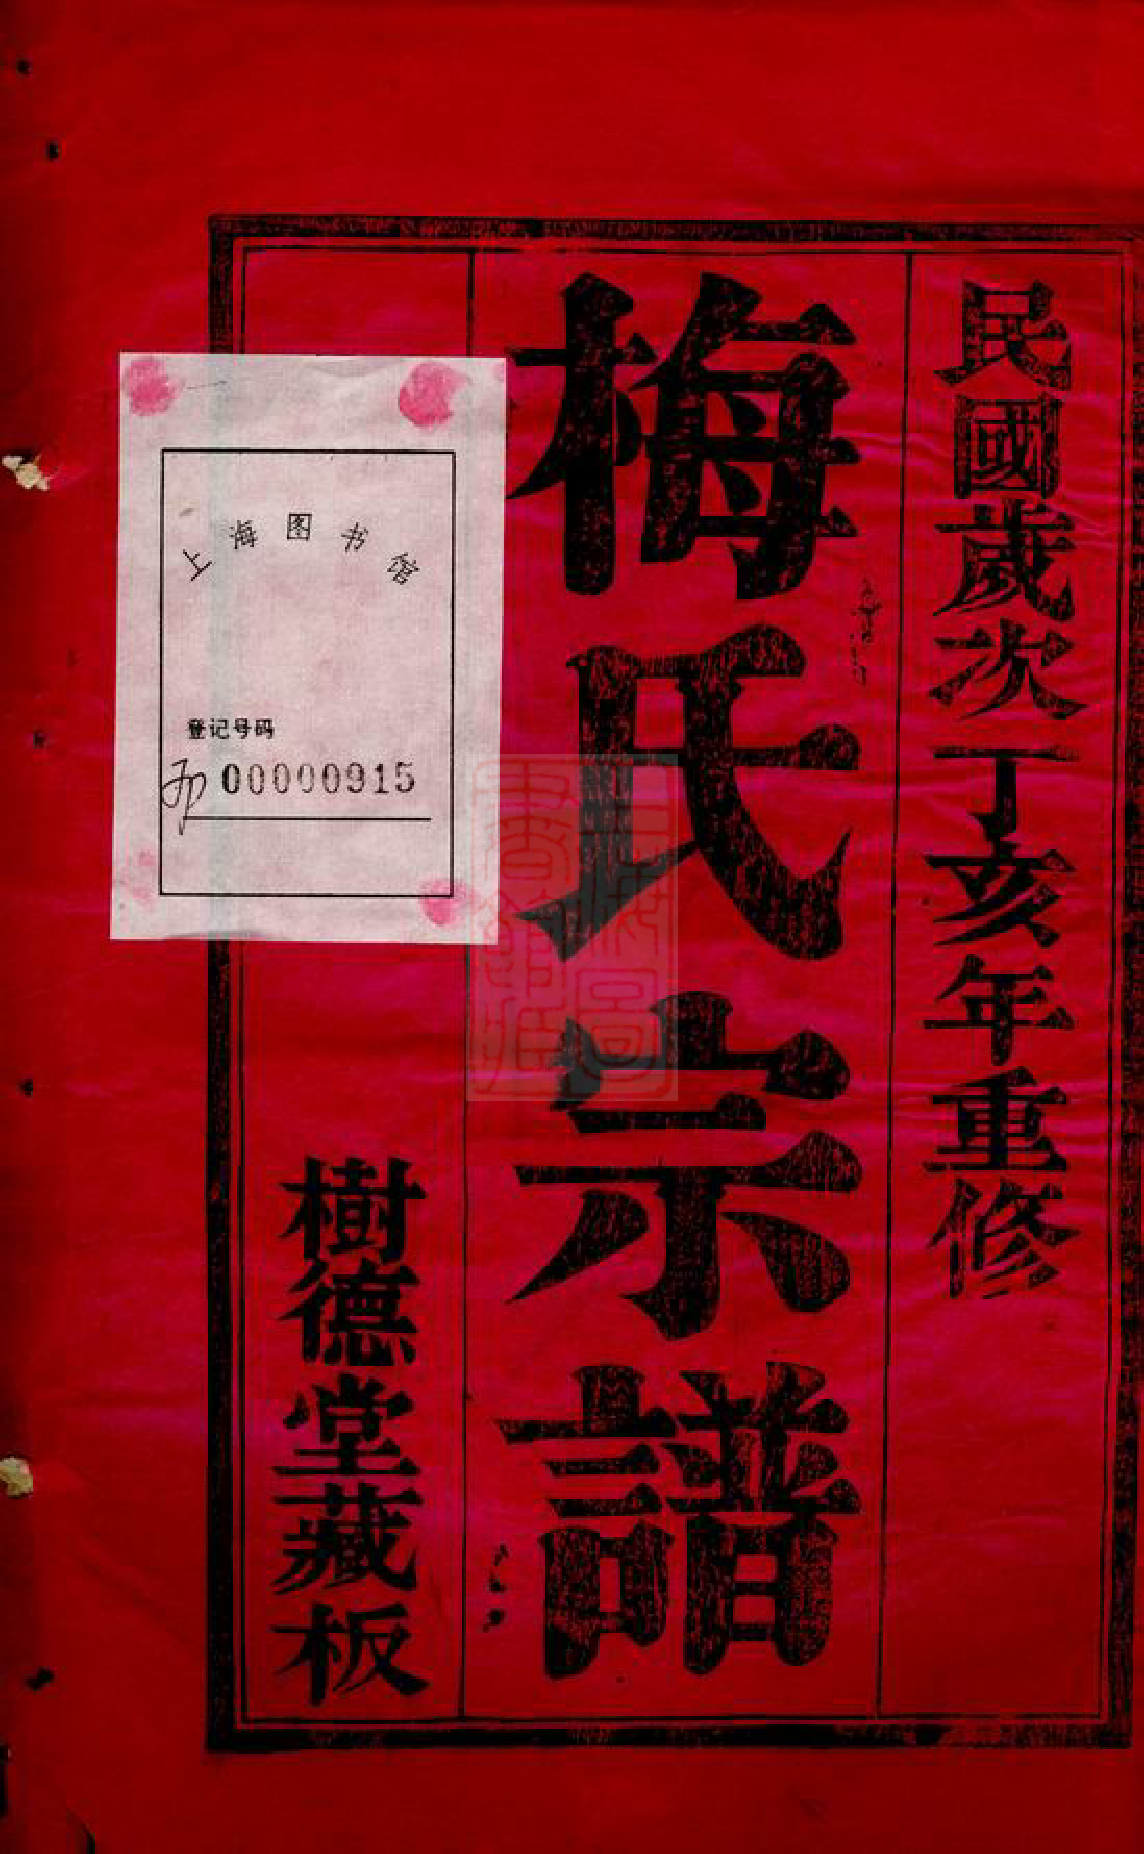 民國歲次丁亥年重修
梅氏宗譜
樹德堂藏板
上海图书馆
登记号码
00000915